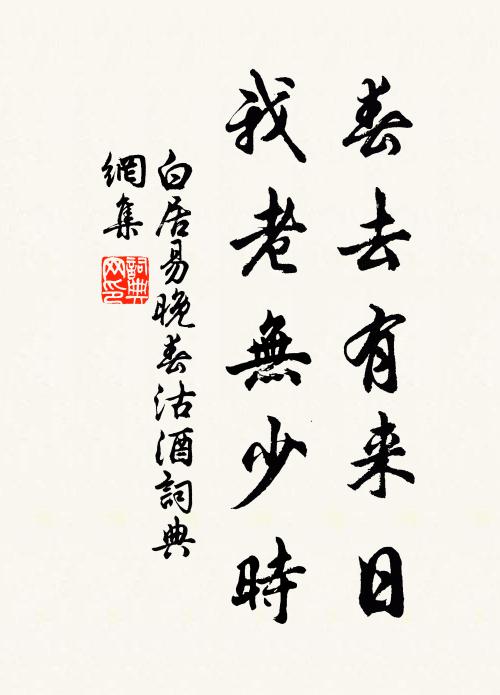 春去有来日
我老無少時
白居易晚春沽酒詞典
網集
詞典網印